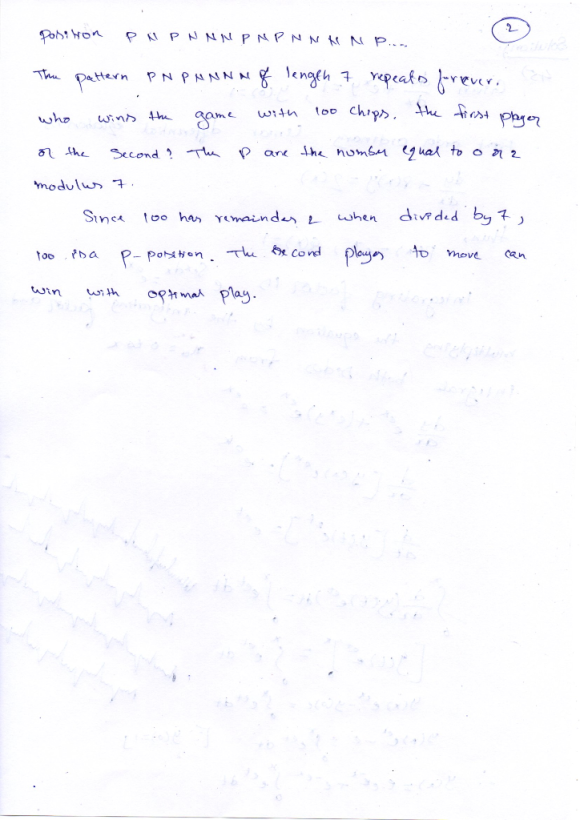 2
Position P N P N N N N P N P N N N N P....
The pattern P N P N N N N of length 7 repeats forever.
who wins the game with 100 chips. the first player
or the second? The P are the number equal to 0 or 2
modulus 7.
Since 100 has remainder 2 when divided by 7,
100 is a P-position. The second player to move can
win with optimal play.